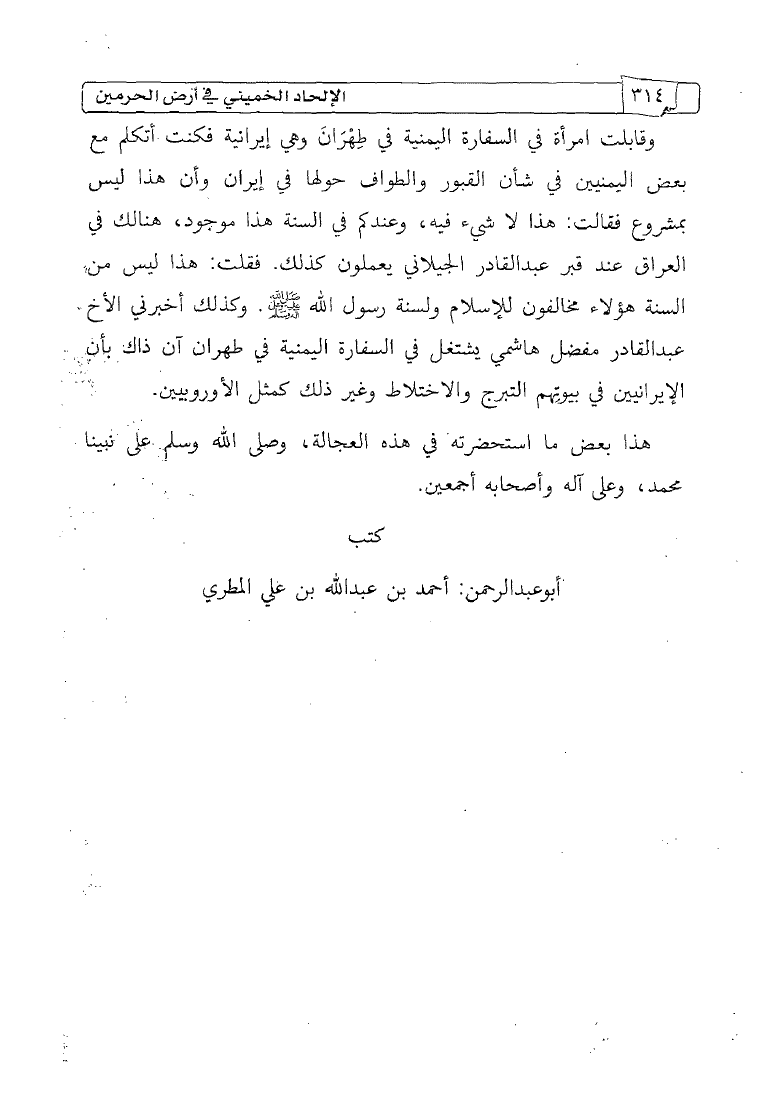 ٣١٤ الإلحاد الخميني في أرض الحرمين
وقابلت امرأة في السفارة اليمنية في طِهْرَانَ وهي إيرانية فكنت أتكلم مع
بعض اليمنيين في شأن القبور والطواف حولها في إيران وأن هذا ليس
بمشروع فقالت: هذا لا شيء فيه، وعندكم في السنة هذا موجود، هنالك في
العراق عند قبر عبدالقادر الجيلاني يعملون كذلك. فقلت: هذا ليس من
السنة هؤلاء مخالفون للإسلام ولسنة رسول الله ﷺ. وكذلك أخبرني الأخ
عبدالقادر مفضل هاشمي يشتغل في السفارة اليمنية في طهران آن ذاك بأن
الإيرانيين في بيوتهم التبرج والاختلاط وغير ذلك كمثل الأوروبيين.
هذا بعض ما استحضرته في هذه العجالة، وصلى الله وسلم على نبينا
محمد، وعلى آله وأصحابه أجمعين.
كتب
أبوعبدالرحمن: أحمد بن عبدالله بن علي المطري